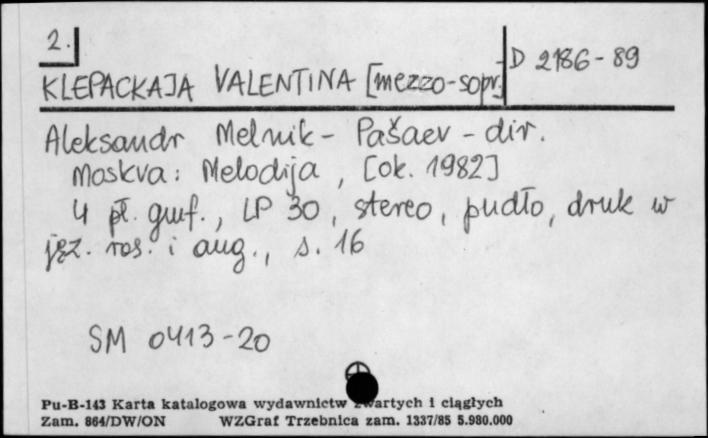 2.
D 2186-89
KLEPACKAJA VALENTINA [mezzo-sopr.]
Aleksandr Melnik - Pašaev - dir.
Moskva: Melodija, [ok. 1982]
4 pł. gramf., LP 30, stereo, pudło, druk w
jęz. ros. i ang., s. 16
SM 0413-20
Pu-B-143 Karta katalogowa wydawnictw zwartych i ciągłych
Zam. 864/DW/ON WZGraf Trzebnica zam. 1337/85 5.980.000